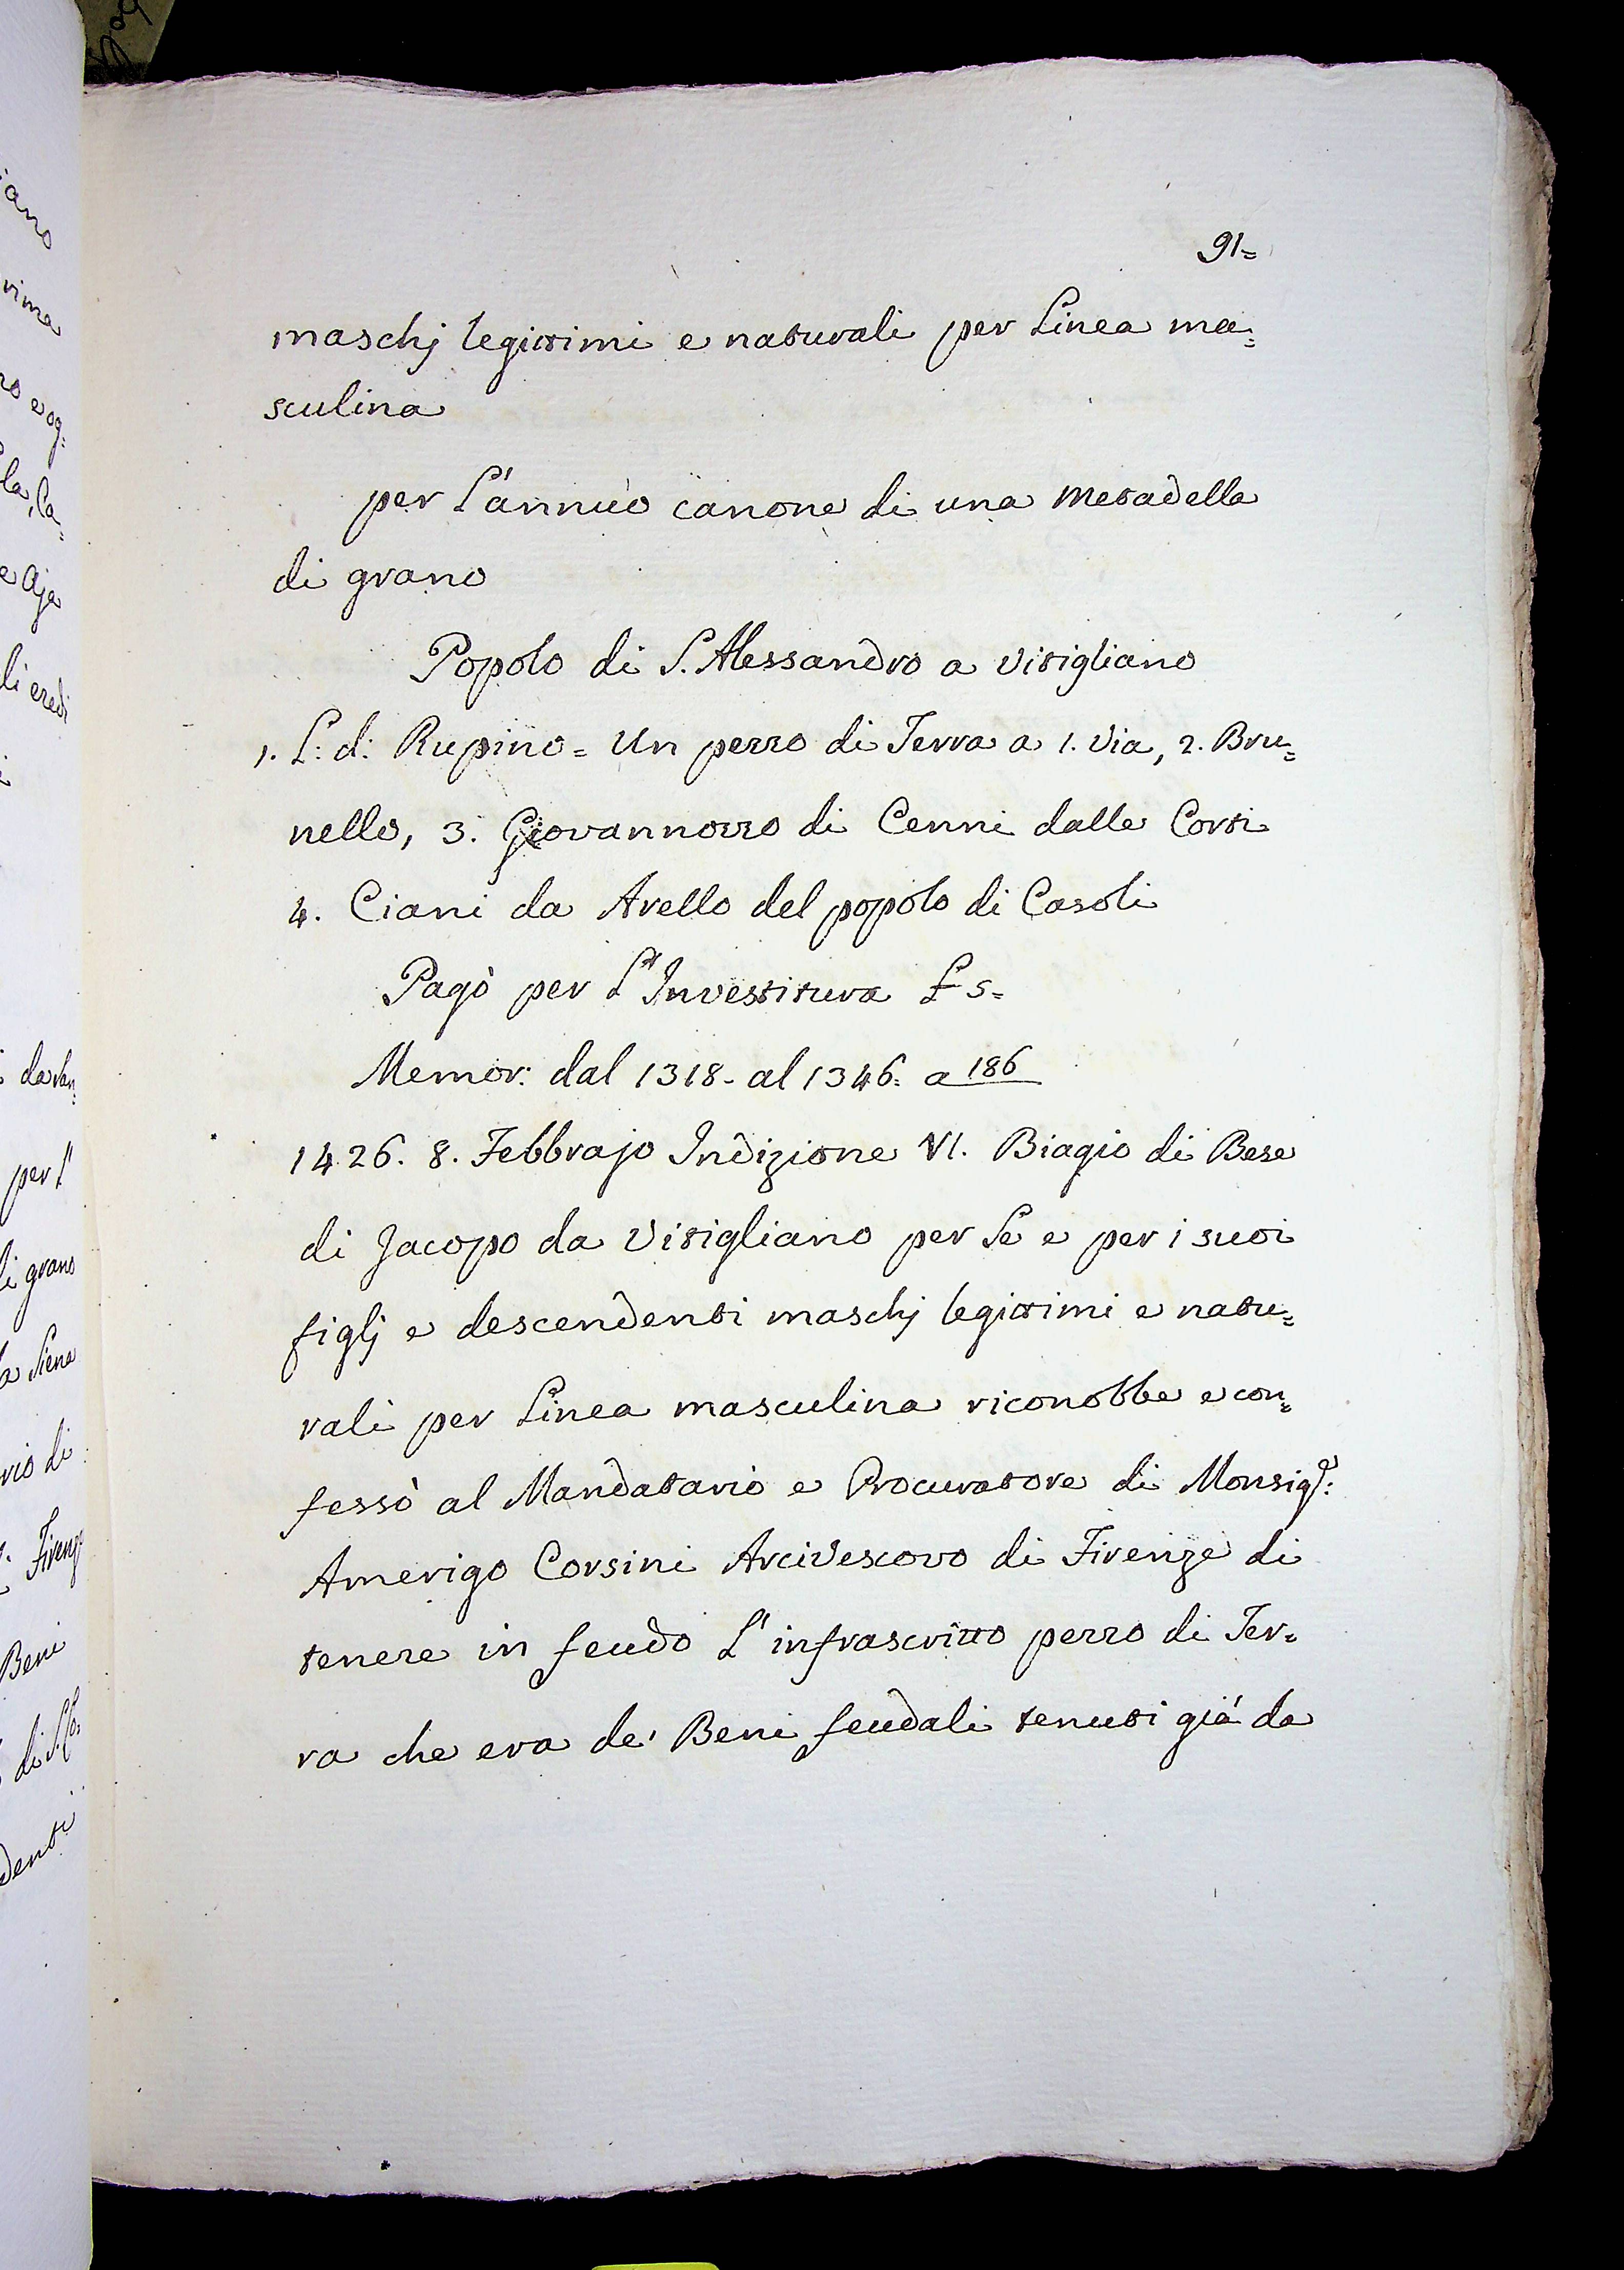 91=
maschj legittimi e naturali per Linea ma=
sculina
per L'annuo canone di una metadella
di grano
Popolo di S. Alessandro a Vitigliano
1. L: d: Rupino = Un pezzo di Terra a 1. Via, 2. Bru=
nello, 3. Giovannozzo di Cenni dalle Corti
4. Ciani da Avello del popolo di Casoli
Pagò per L'Investitura £ 5=
Memor: dal 1318- al 1346= a 186
1426. 8. Febbrajo Indizione VI. Biagio di Bese
di Jacopo da Vitigliano per Se e per i suoi
figlj e descendenti maschj legittimi e natu=
rali per Linea masculina riconobbe e con=
fessò al Mandatario e Procuratore di Monsigr:
Amerigo Corsini Arcivescovo di Firenze di
tenere in feudo L'infrascritto pezzo di Ter=
ra che era de' Beni feudali tenuti già da